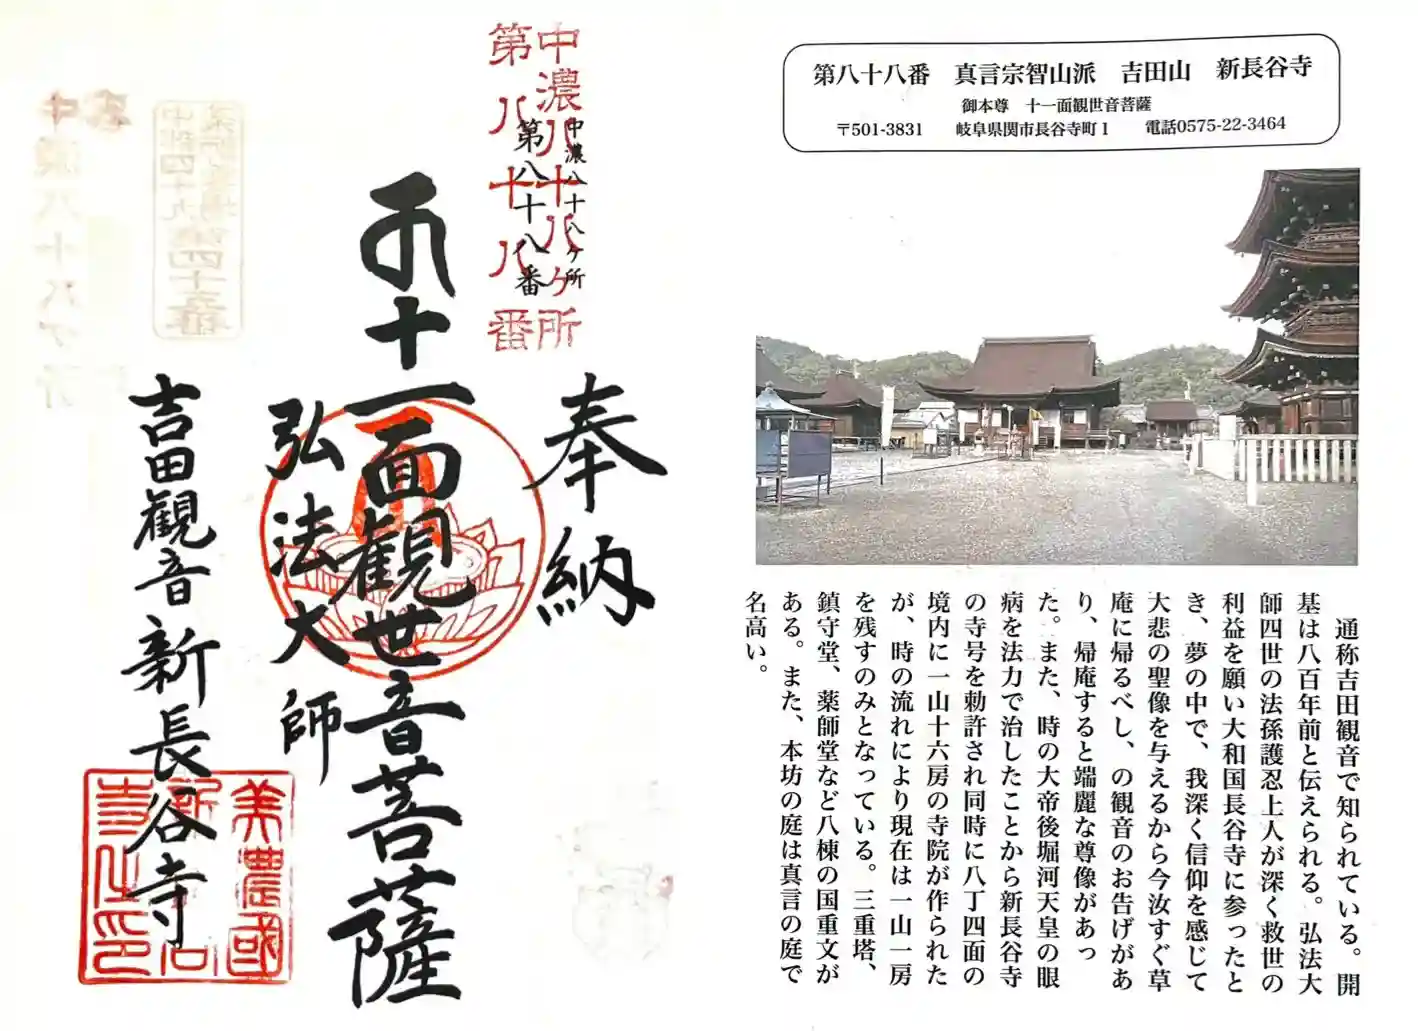 第八十八番　真言宗智山派　吉田山　新長谷寺
御本尊　十一面観世音菩薩
〒501-3831　岐阜県関市長谷寺町1　電話0575-22-3464
通称吉田観音で知られている。開
基は八百年前と伝えられる。弘法大
師四世の法孫護忍上人が深く救世の
利益を願い大和国長谷寺に参ったと
き、夢の中で、我深く信仰を感じて
大悲の聖像を与えるから今汝すぐ草
庵に帰るべし、の観音のお告げがあ
り、帰庵すると端麗な尊像があっ
た。また、時の大帝後堀河天皇の眼
病を法力で治したことから新長谷寺
の寺号を勅許され同時に八丁四面の
境内に一山十六房の寺院が作られた
が、時の流れにより現在は一山一房
を残すのみとなっている。三重塔、
鎮守堂、薬師堂など八棟の国重文が
ある。また、本坊の庭は真言の庭で
名高い。
中濃八十八ヶ所
第八十八番
中濃八十八ヶ所
第八十八番
奉納
十一面観世音菩薩
弘法大師
吉田観音新長谷寺
美濃國
新
寺之印
中濃八十八ヶ所
第四十五番